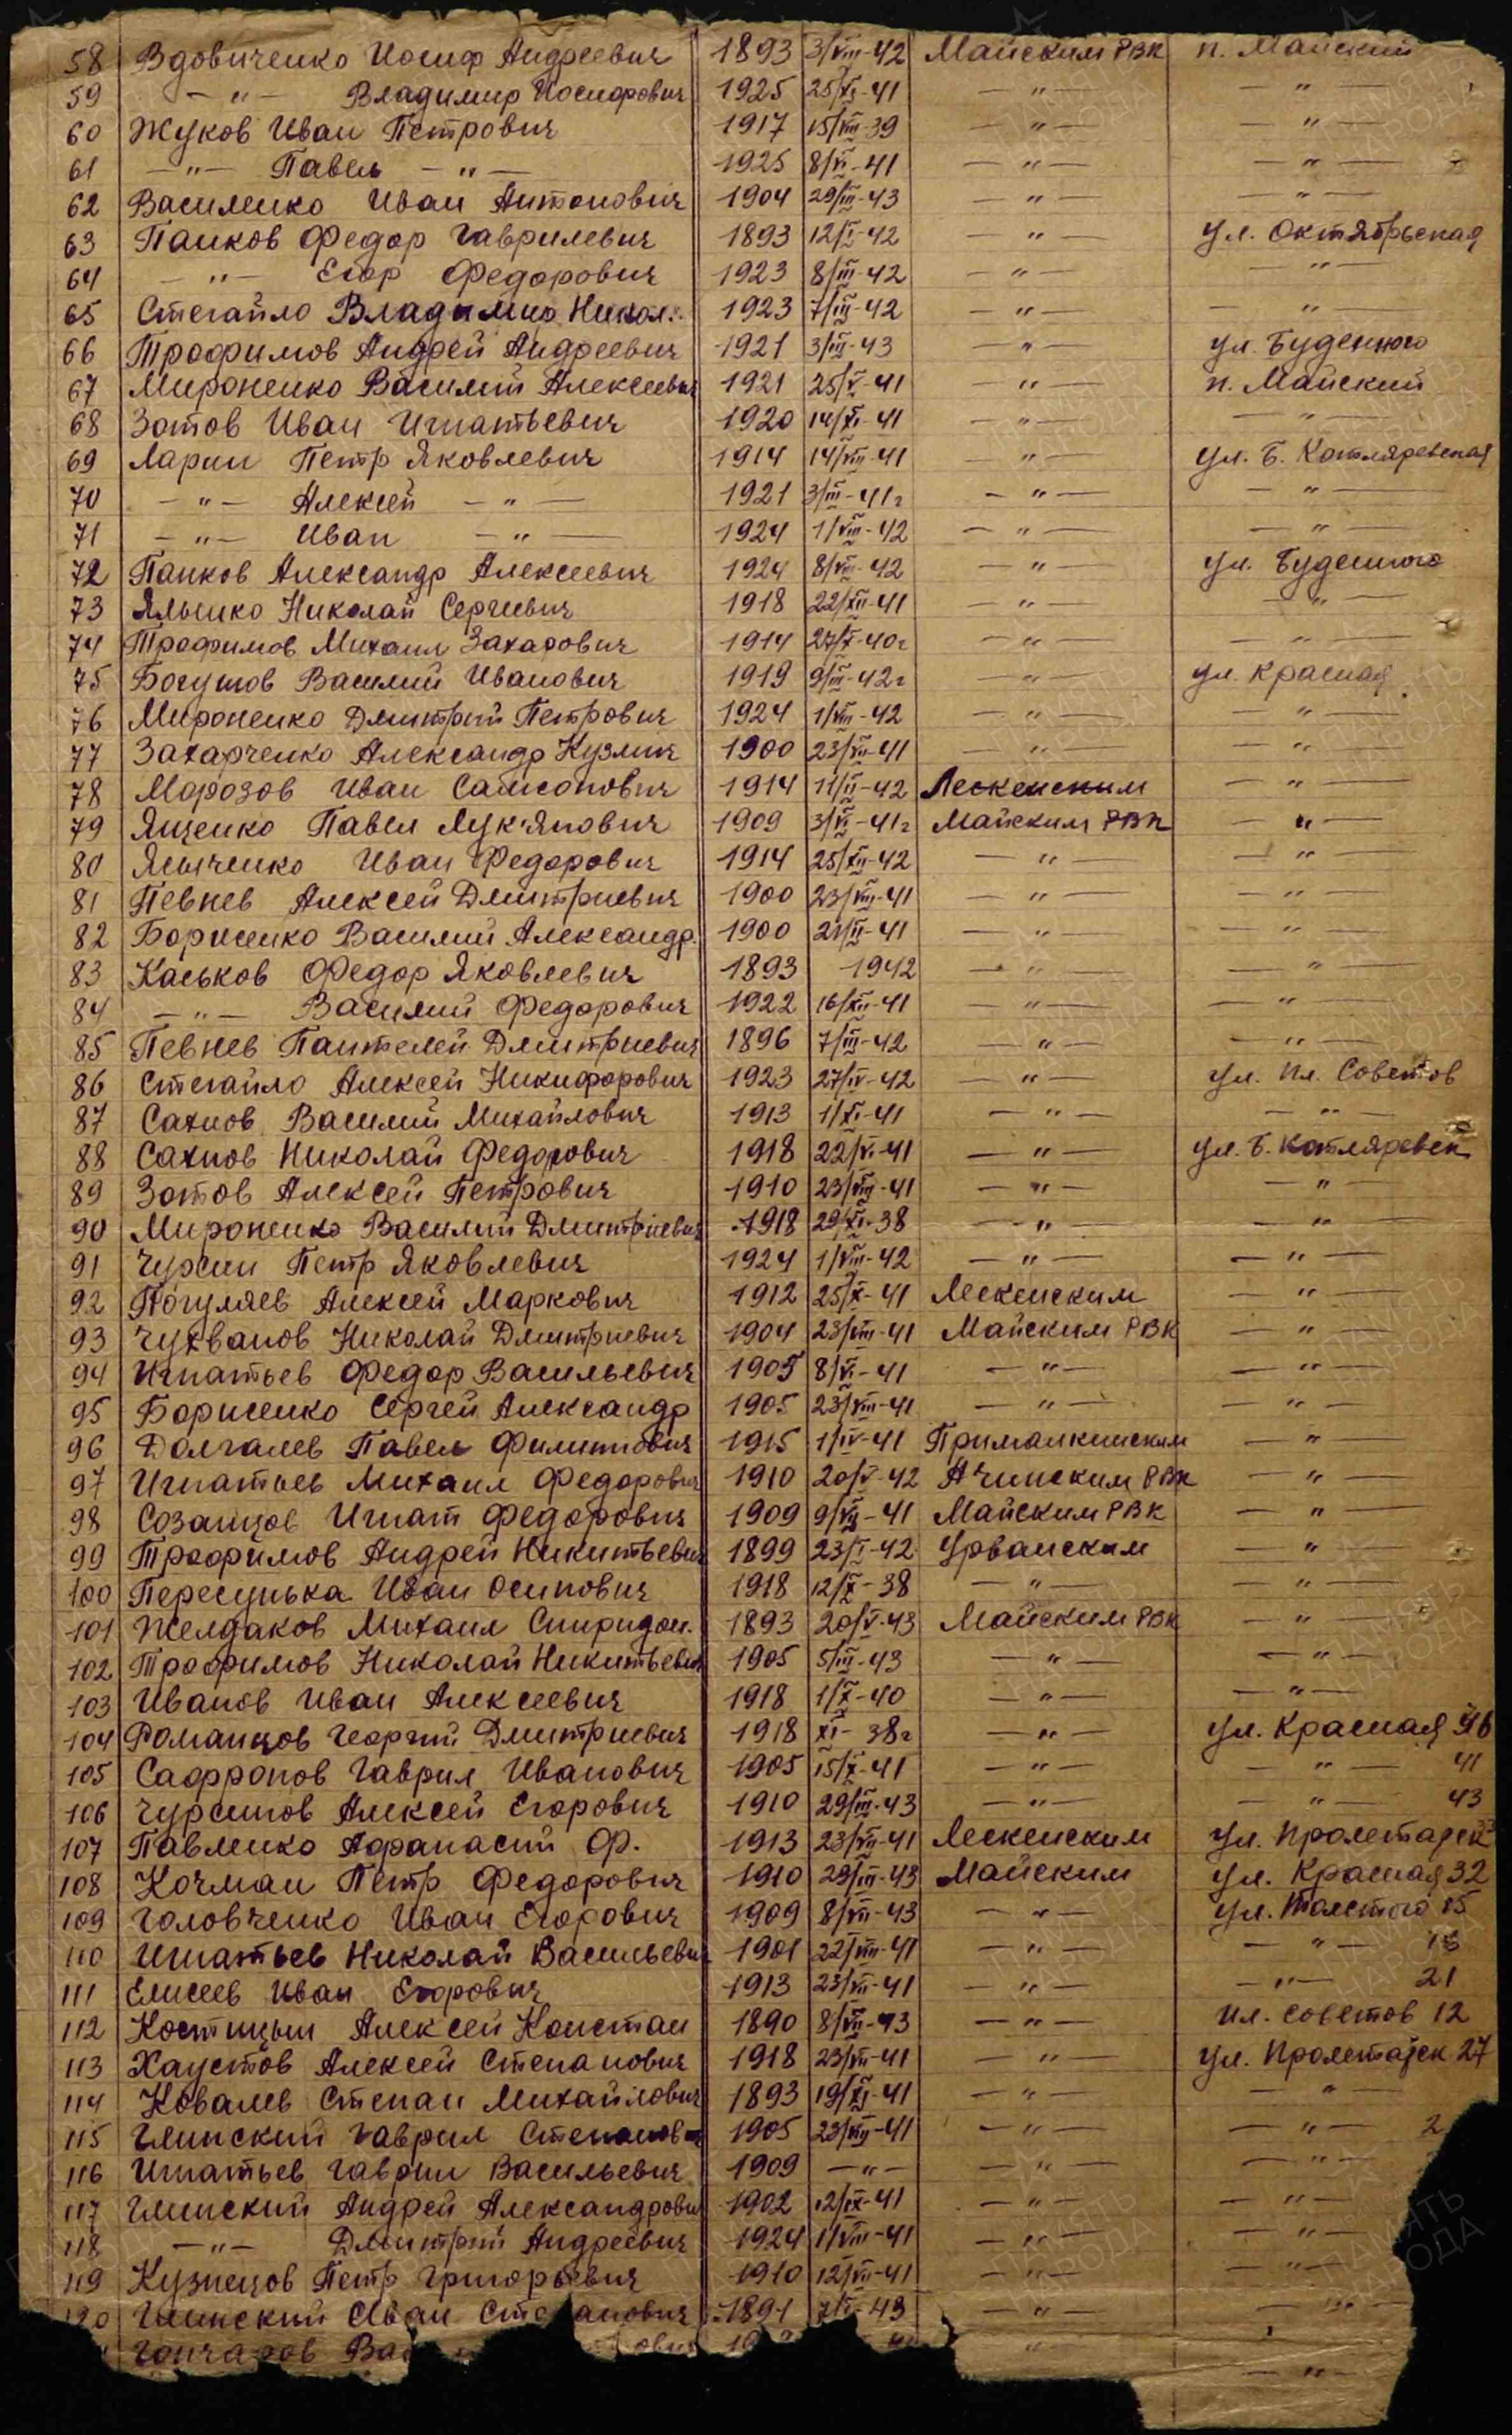 58 Вдовиченко Иосиф Андреевич 1893 3/VIII-42 Майским РВК п. Майский
59 —"— Владимир Иосифович 1925 25/XI-41 —"— —"—
60 Жуков Иван Петрович 1917 15/VIII-39 —"— —"—
61 —"— Павел —"— 1925 8/VI-41 —"— —"—
62 Василенко Иван Антонович 1904 29/III-43 —"— —"—
63 Панков Федор Гаврилевич 1893 12/I-42 —"— ул. Октябрьская
64 —"— Егор Федорович 1923 8/III-42 —"— —"—
65 Стегайло Владимир Никол. 1923 7/III-42 —"— —"—
66 Трофимов Андрей Андреевич 1921 3/III-43 —"— ул. Буденного
67 Мироненко Василий Алексеевич 1921 25/V-41 —"— п. Майский
68 Зотов Иван Игнатьевич 1920 14/XI-41 —"— —"—
69 Ларин Петр Яковлевич 1914 14/VII-41 —"— ул. Б. Котляревская
70 —"— Алексей —"— 1921 3/III-41г —"— —"—
71 —"— Иван —"— 1924 1/VIII-42 —"— —"—
72 Панков Александр Алексеевич 1924 8/VIII-42 —"— ул. Буденного
73 Николай Сергиевич 1918 22/XII-41 —"— —"—
74 Трофимов Михаил Захарович 1914 27/X-40г —"— —"—
75 Василий Иванович 1919 9/III-42г —"— ул. Красная
76 Мироненко Дмитрий Петрович 1924 1/VIII-42 —"— —"—
77 Захарченко Александр Кузмич 1900 23/VII-41 —"— —"—
78 Морозов Иван Самсонович 1914 11/II-42 Лескенским —"—
79 Ященко Павел Лук'янович 1909 3/VI-41г Майским РВК —"—
80 Иван Федорович 1914 25/XII-42 —"— —"—
81 Певнев Алексей Дмитриевич 1900 23/VIII-41 —"— —"—
82 Борисенко Василий Александр. 1900 —"— —"—
83 Каськов Федор Яковлевич 1893 1942 —"— —"—
84 —"— Василий Федорович 1922 16/XII-41 —"— —"—
85 Певнев Пантелей Дмитриевич 1896 7/III-42 —"— —"—
86 Стегайло Алексей Никифорович 1923 27/IV-42 —"— ул. Пл. Советов
87 Сахнов Василий Михайлович 1913 1/XI-41 —"— —"—
88 Сахнов Николай Федорович 1918 22/VI-41 —"— ул. Б. Котляревск
89 Зотов Алексей Петрович 1910 23/VIII-41 —"— —"—
90 Мироненко Василий Дмитриевич 1918 29/XI-38 —"— —"—
91 Чурсин Петр Яковлевич 1924 1/VIII-42 —"— —"—
92 Погуляев Алексей Маркович 1912 25/X-41 Лескенским —"—
93 Николай Дмитриевич 1904 23/VIII-41 Майским РВК —"—
94 Игнатьев Федор Васильевич 1905 8/VI-41 —"— —"—
95 Борисенко Сергей Александр 1905 23/VIII-41 —"— —"—
96 Долгалев Павел Филиппович 1915 1/IV-41 —"—
97 Игнатьев Михаил Федорович 1910 20/V-42 Ачинским РВК —"—
98 Созанцов Игнат Федорович 1909 9/VII-41 Майским РВК —"—
99 Трофимов Андрей Никитьевич 1899 23/I-42 Урванским —"—
100 Пересунька Иван Осипович 1918 12/X-38 —"— —"—
101 Желдаков Михаил Спиридон. 1893 20/V-43 Майским РВК —"—
102 Трофимов Николай Никитьевич 1905 5/III-43 —"— —"—
103 Иванов Иван Алексеевич 1918 1/X-40 —"— —"—
104 Романцов Георгий Дмитриевич 1918 XI-38г —"— ул. Красная
105 Сафронов Гаврил Иванович 1905 15/X-41 —"— —"— 41
106 Чурсинов Алексей Егорович 1910 29/III-43 —"— —"— 43
107 Павленко Афанасий Ф. 1913 23/VII-41 Лескенским ул. Пролетарск
108 Кочман Петр Федорович 1910 29/III-43 Майским ул. Красная 32
109 Головченко Иван Егорович 1909 8/VII-43 —"— ул. Толстого 15
110 Игнатьев Николай Васильевич 1901 22/VIII-41 —"— —"—
111 Елисеев Иван Егорович 1913 23/VII-41 —"— —"— 21
112 Костицын Алексей Констан 1890 8/VII-43 —"— Пл. Советов 12
113 Хаустов Алексей Степанович 1918 23/VII-41 —"— ул. Пролетарск 27
114 Ковалев Степан Михайлович 1893 19/XI-41 —"— —"—
115 Глинский Гаврил Степанович 1905 23/VIII-41 —"— —"— 2
116 Игнатьев Гаврил Васильевич 1909 —"— —"— —"—
117 Глинский Андрей Александрович 1902 12/IX-41 —"— —"—
118 —"— Дмитрий Андреевич 1924 1/VIII-41 —"— —"—
119 Кузнецов Петр Григорьевич 1910 12/VII-41 —"— —"—
120 Глинский Иван Степанович 1891 —"— —"—
Гончаров —"— —"—